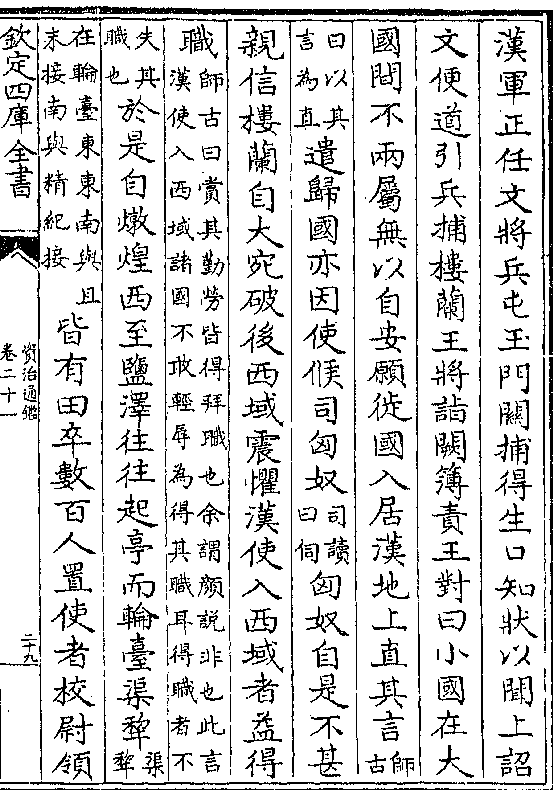 漢軍正任文將兵屯玉門關捕得生口知狀以聞上詔
文便道引兵捕樓蘭王將詣闕簿責王對曰小國在大
國間不兩屬無以自安願徙國入居漢地上直其言師古
曰以其言為直遣歸國亦因使候司匈奴司讀曰伺匈奴自是不甚
親信樓蘭自大宛破後西域震懼漢使入西域者益得
職師古曰賞其勤勞皆得拜職也余謂顔說非也此言漢使入西域諸國不敢輕辱為得其職耳得職者不
失其職也於是自燉煌西至鹽澤往往起亭而輪臺渠犂渠犂
在輪臺東東南與且末接南與精紀接皆有田卒數百人置使者校尉領
欽定四庫全書
資治通鑑
卷二十一
二十九